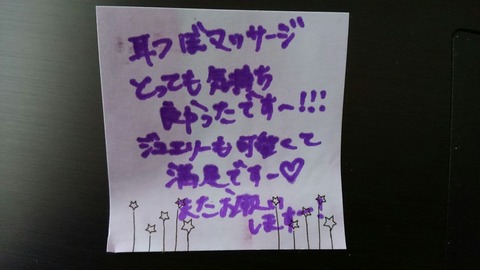 耳つぼマッサージ
とっても気持ち
良かったです〜!!!
ジュエリーも可愛くて
満足です〜♡
またお願い
します〜!